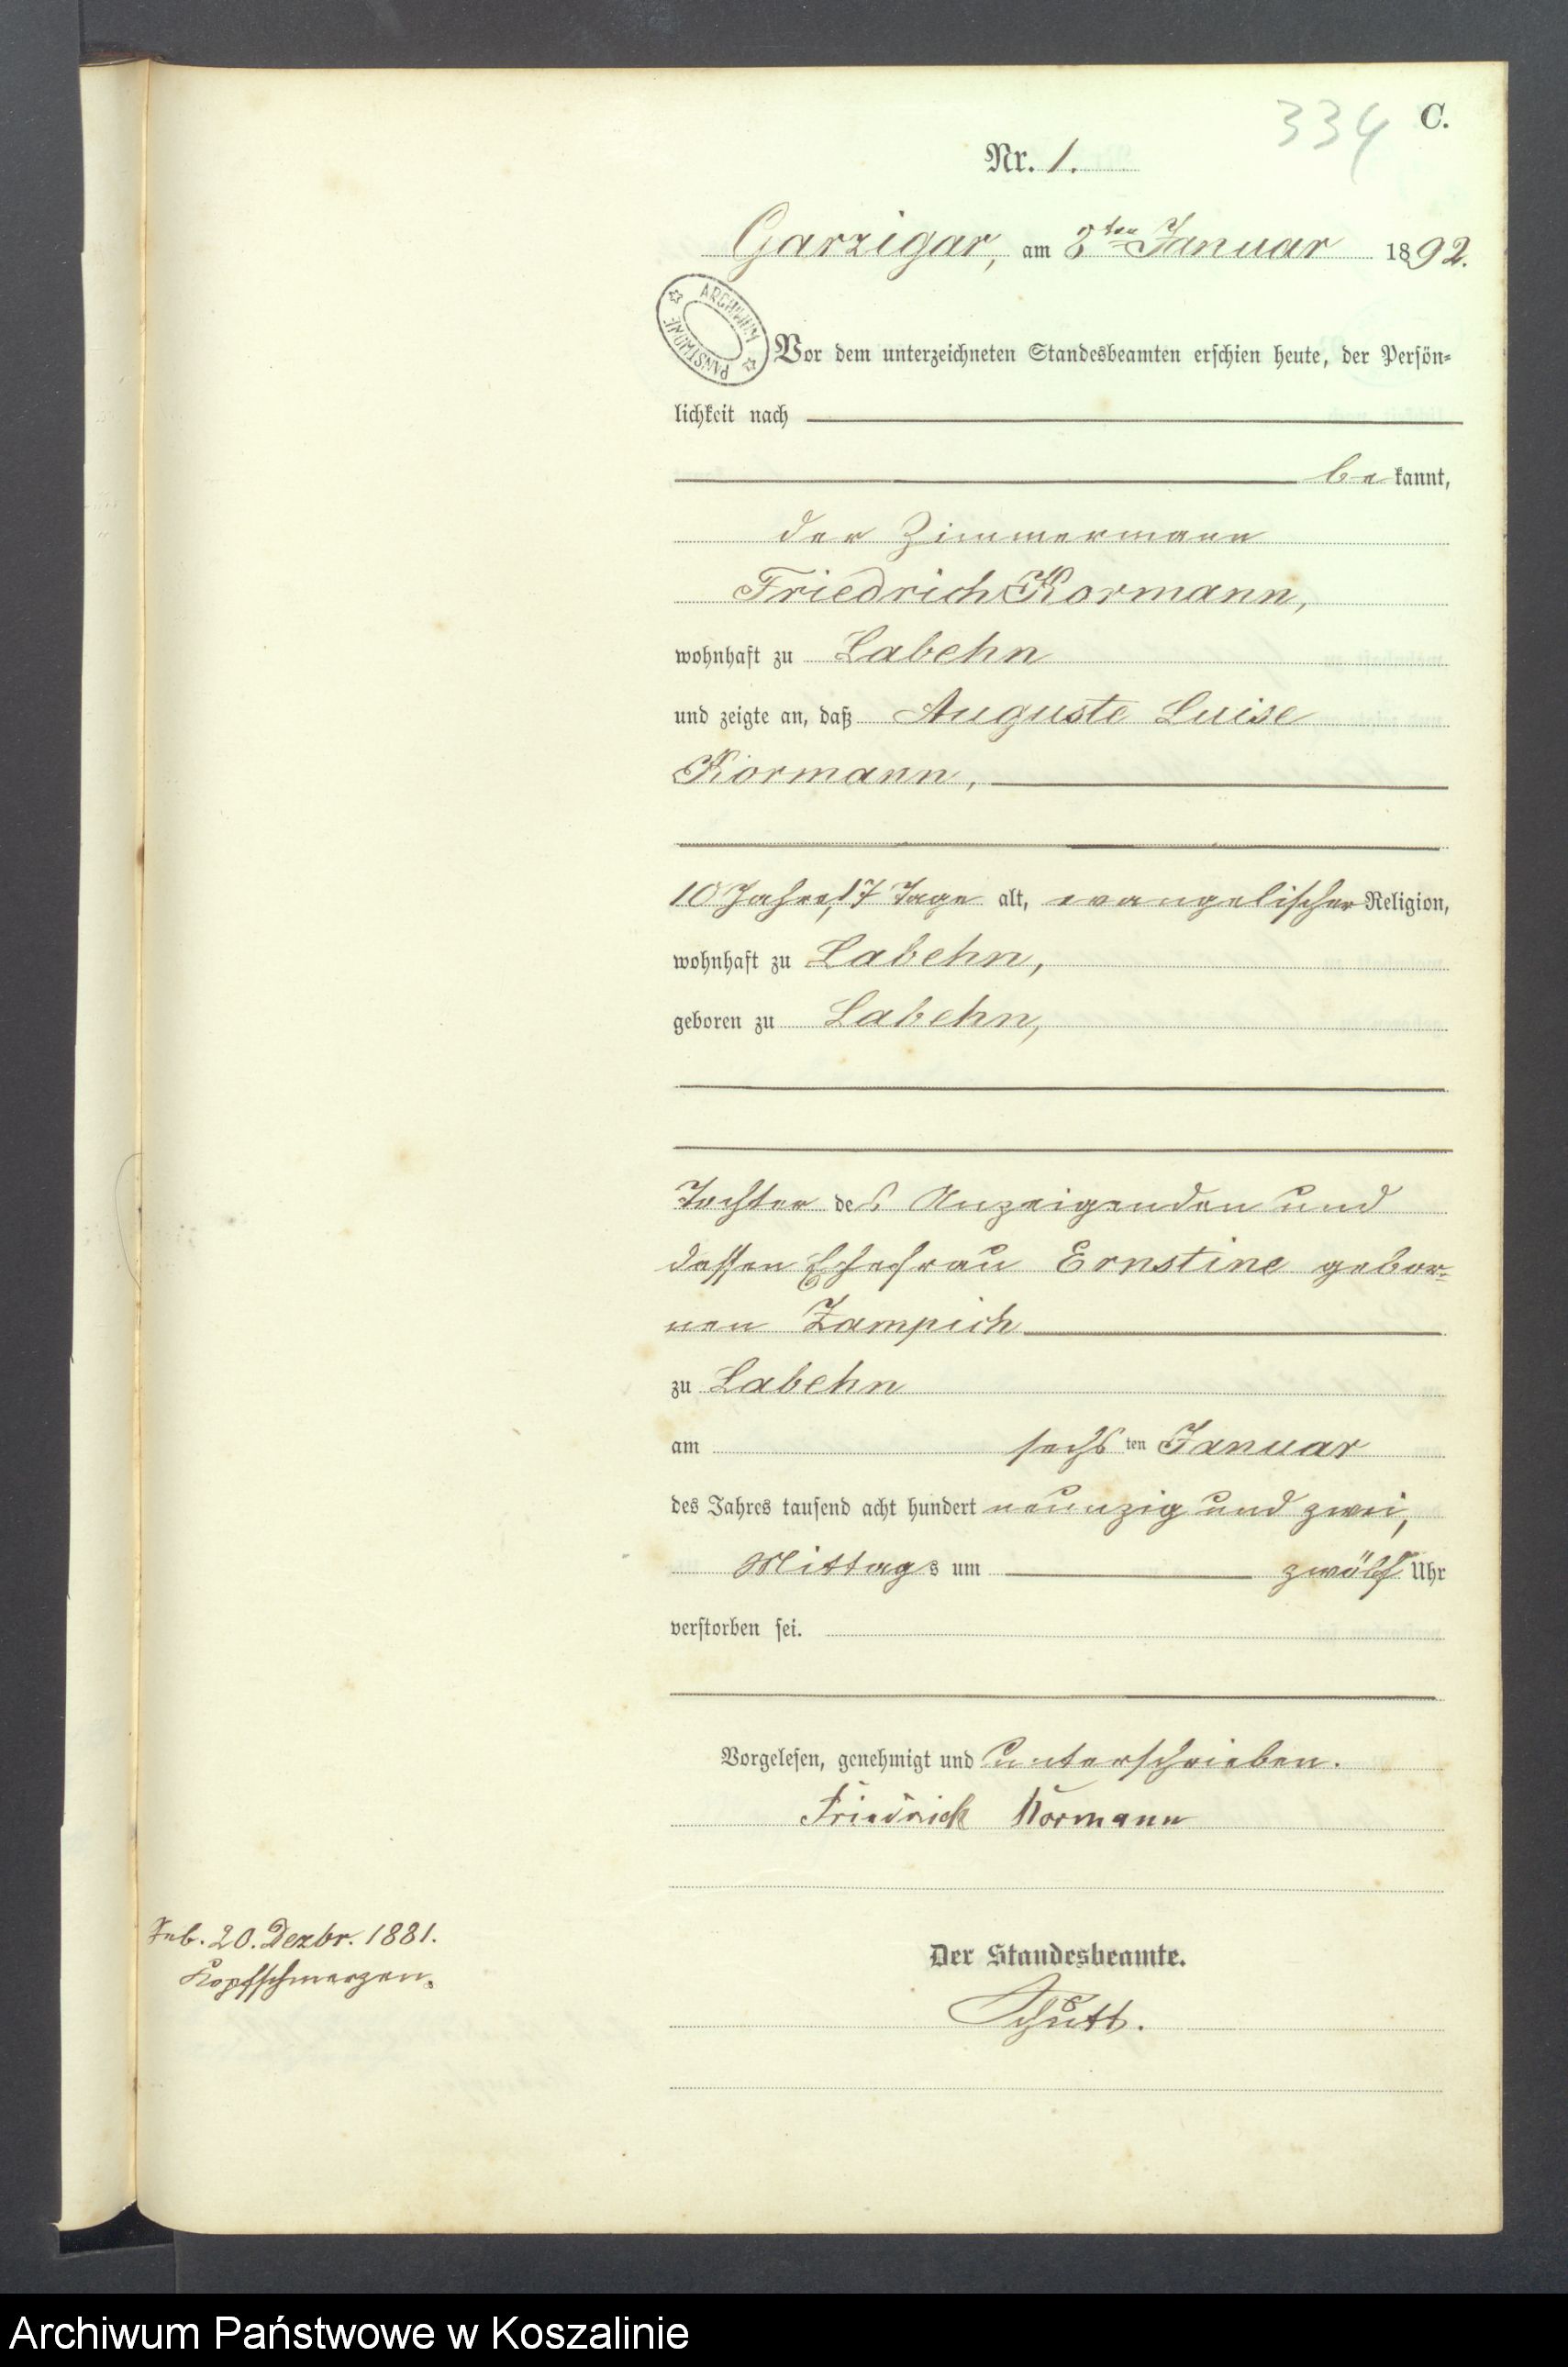 334 C.
Nr. 1.
Garzigar, am 8ten Januar 1892.
ARCHIWUM PAŃSTWOWE
Vor dem unterzeichneten Standesbeamten erschien heute, der Persön-
lichkeit nach
be kannt,
der Zimmermann
Friedrich Kormann,
wohnhaft zu Labehn
und zeigte an, daß Auguste Luise
Kormann,
10 Jahre, 17 Tage alt, evangelischer Religion,
wohnhaft zu Labehn,
geboren zu Labehn,
Tochter des Anzeigenden und
dessen Ehefrau Ernstine gebor-
nen Zampich
zu Labehn
am sechs ten Januar
des Jahres tausend acht hundert neunzig und zwei,
Mittags um zwölf Uhr
verstorben sei.
Vorgelesen, genehmigt und unterschrieben.
Friedrich Kormann
Geb. 20. Dezbr. 1881.
Kopfschmerzen.
Der Standesbeamte.
Schütt.
Archiwum Państwowe w Koszalinie